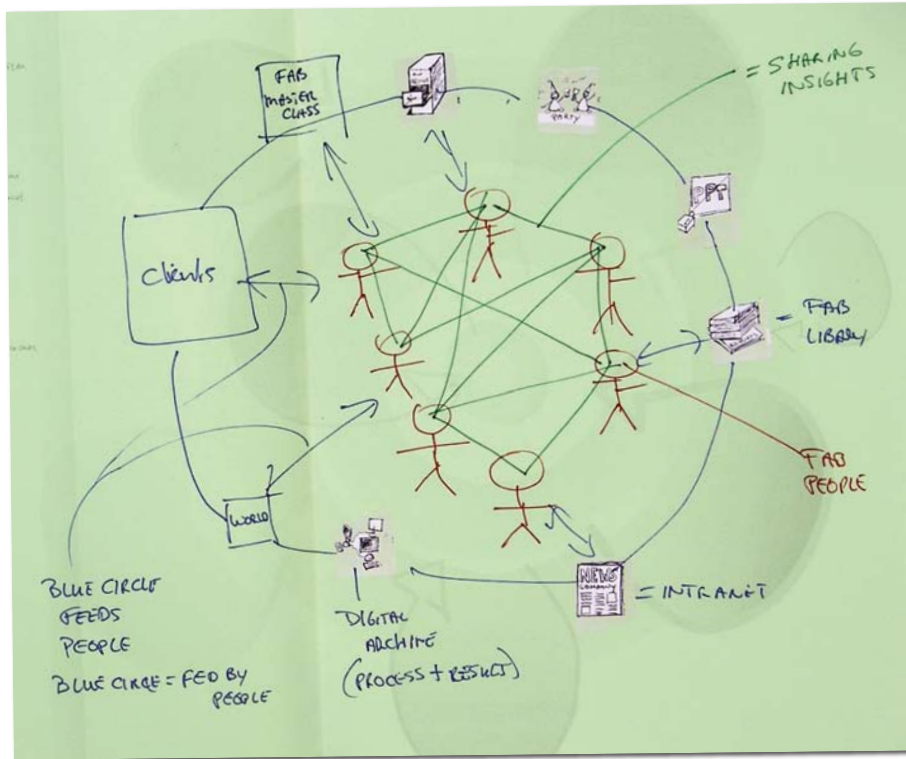 FAB
MASTER
CLASS
PARTY
= SHARING
INSIGHTS
PPT
Clients
= FAB
LIBARY
FAB
PEOPLE
WORLD
NEWS
COMPANY
= INTRANET
DIGITAL
ARCHIVE
(PROCESS + RESULT)
BLUE CIRCLE
FEEDS
PEOPLE
BLUE CIRCLE = FED BY
PEOPLE